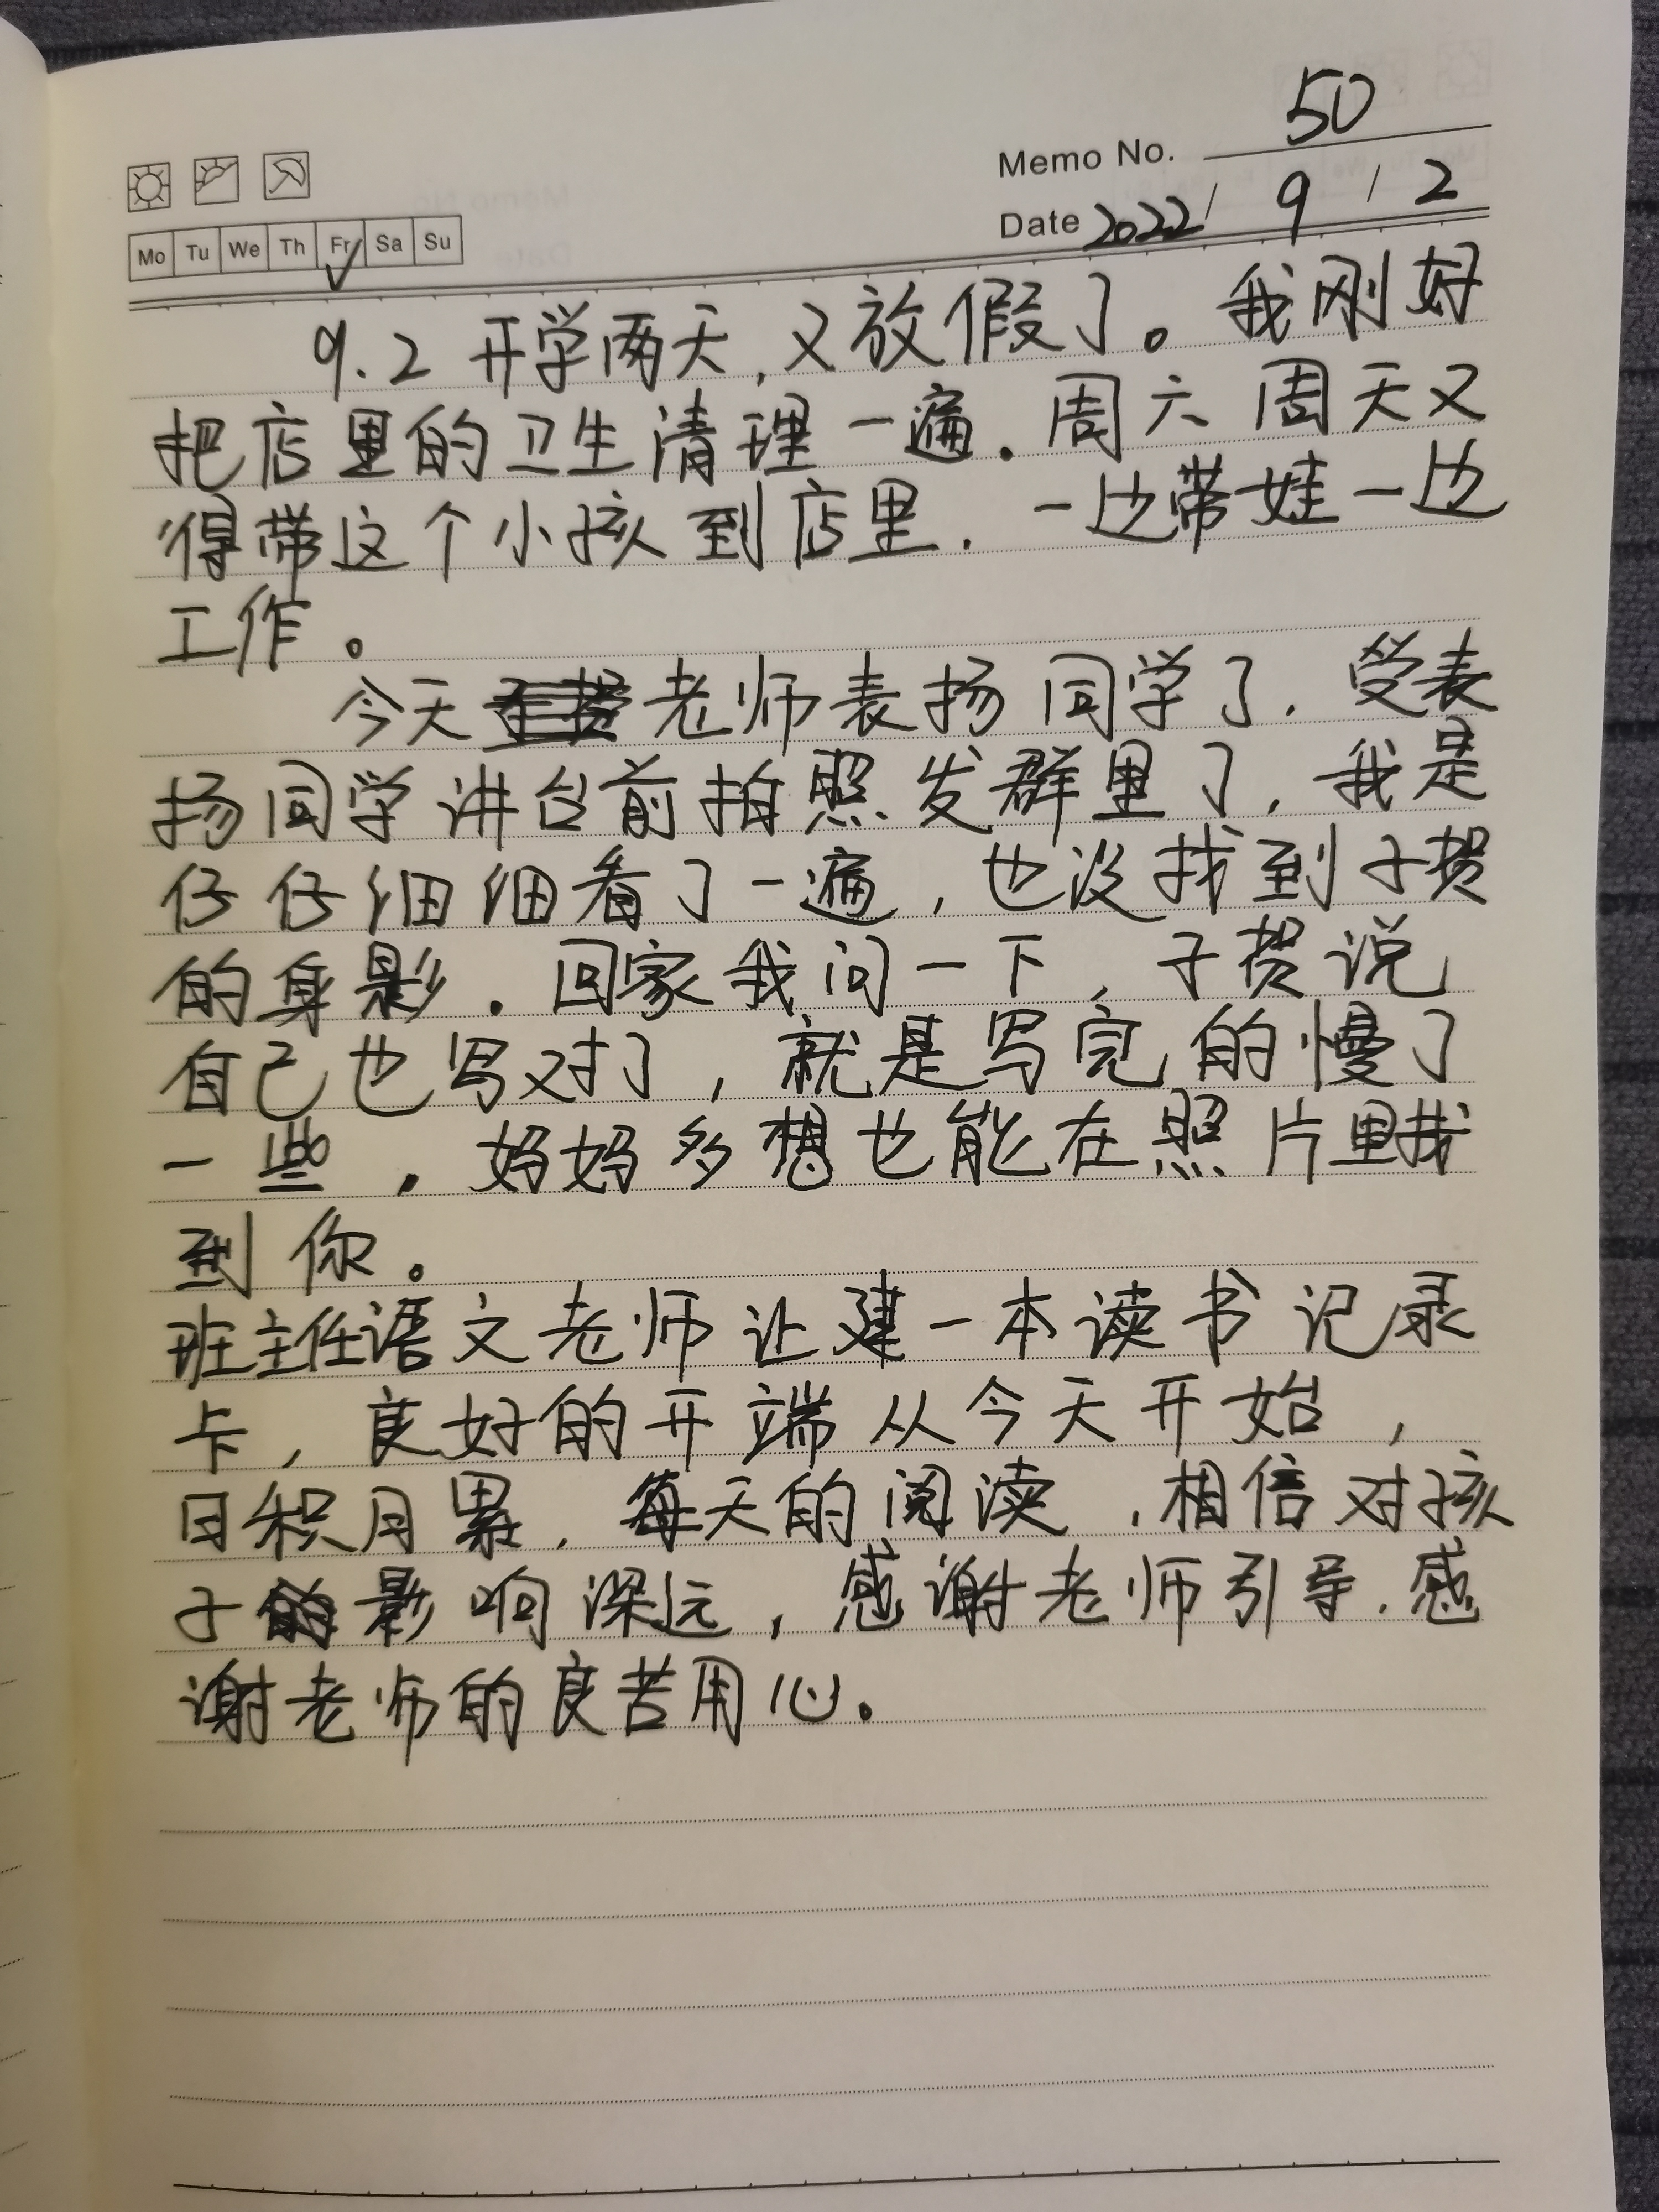 Memo No. 50
Mo Tu We Th Fr Sa Su
Date 2022 / 9 / 2
9.2 开学两天,又放假了。我刚好
把店里的卫生清理一遍.周六周天又
得带这个小孩到店里.一边带娃一边
工作。
今天老师表扬同学了.受表
扬同学讲台前拍照发群里了,我是
仔仔细细看了一遍,也没找到子贺
的身影.回家我问一下,子贺说
自己也写对了,就是写完的慢了
一些,妈妈多想也能在照片里找
到你。
班主任语文老师让建一本读书记录
卡,良好的开端从今天开始,
日积月累,每天的阅读,相信对孩
子的影响深远,感谢老师引导.感
谢老师的良苦用心。